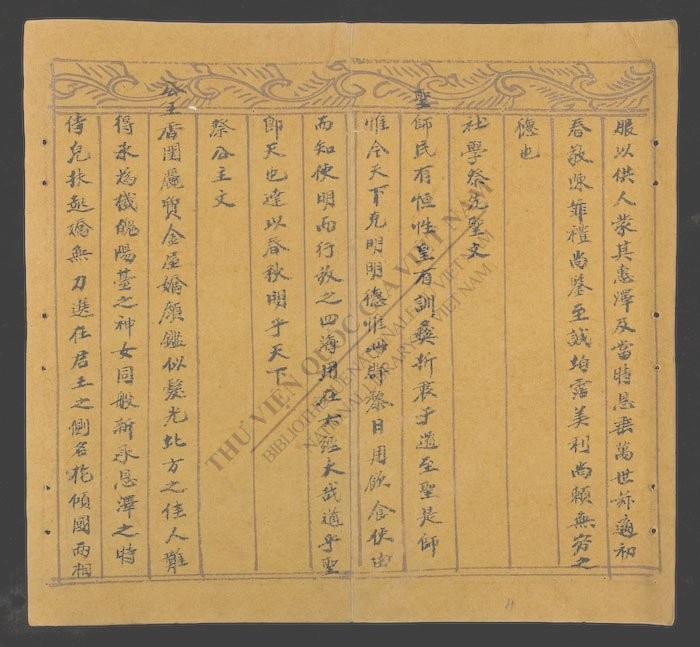 服以供人蒙其惠澤及當時恩垂萬世茲適初
春敬陳菲禮尚鑒至誠均霑美利尚賴無窮之
德也
社學祭先聖文
聖師民有恒性皇有訓彝折衷于道至聖是師
惟今天下克明明德惟此群黎日用飲食使由
而知使明而行放之四海用在六經大哉道乎聖
即天也達以春秋明乎天下
祭公主文
公主香閨麗質金屋嬌顏鑑似髮光北方之佳人難
得承為 陽臺之神女同般新承恩澤之時
侍兒扶起嬌無力進在君王之側名花傾國兩相
THƯ VIỆN QUỐC GIA VIỆT NAM
BIBLIOTHÈQUE NATIONALE DU VIETNAM
NATIONAL LIBRARY OF VIETNAM